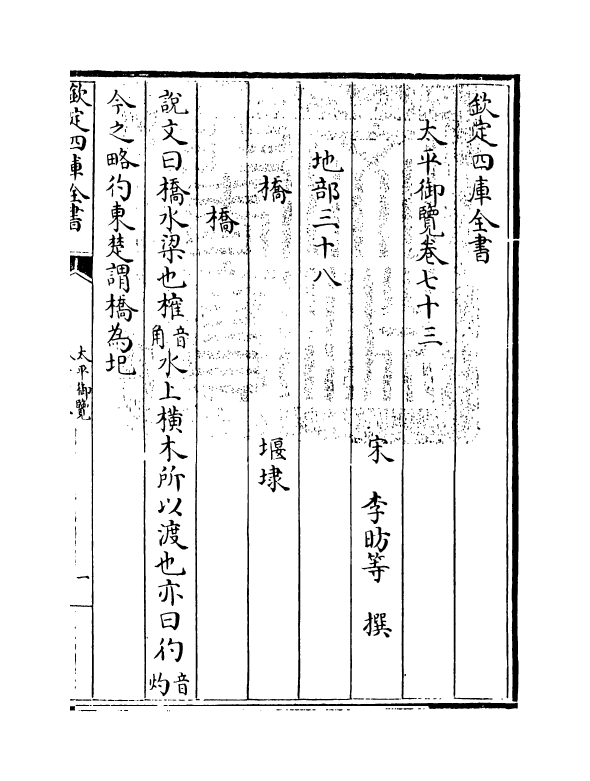 欽定四庫全書
太平御覽卷七十三
宋 李昉等 撰
地部三十八
橋 堰埭
橋
說文曰橋水梁也榷音角水上橫木所以渡也亦曰彴音灼
今之略彴東楚謂橋為圯
欽定四庫全書
太平御覽
一